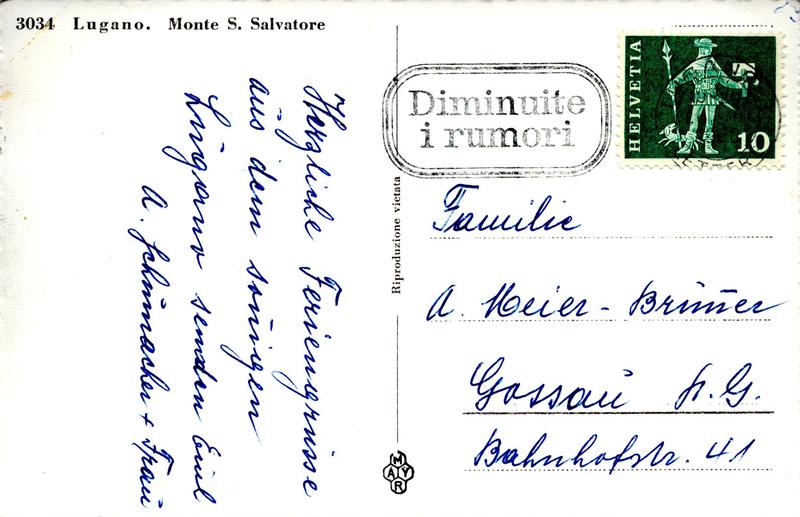 3034 Lugano. Monte S. Salvatore
Herzliche Feriengrüsse
aus dem sonigen
Lugano senden Euch
A. Schumacher + Frau
Riproduzione vietata
Diminuite
i rumori
HELVETIA
10
Familie
A. Meier-Brunner
Gossau St. G.
Bahnhofstr. 41
MAYR